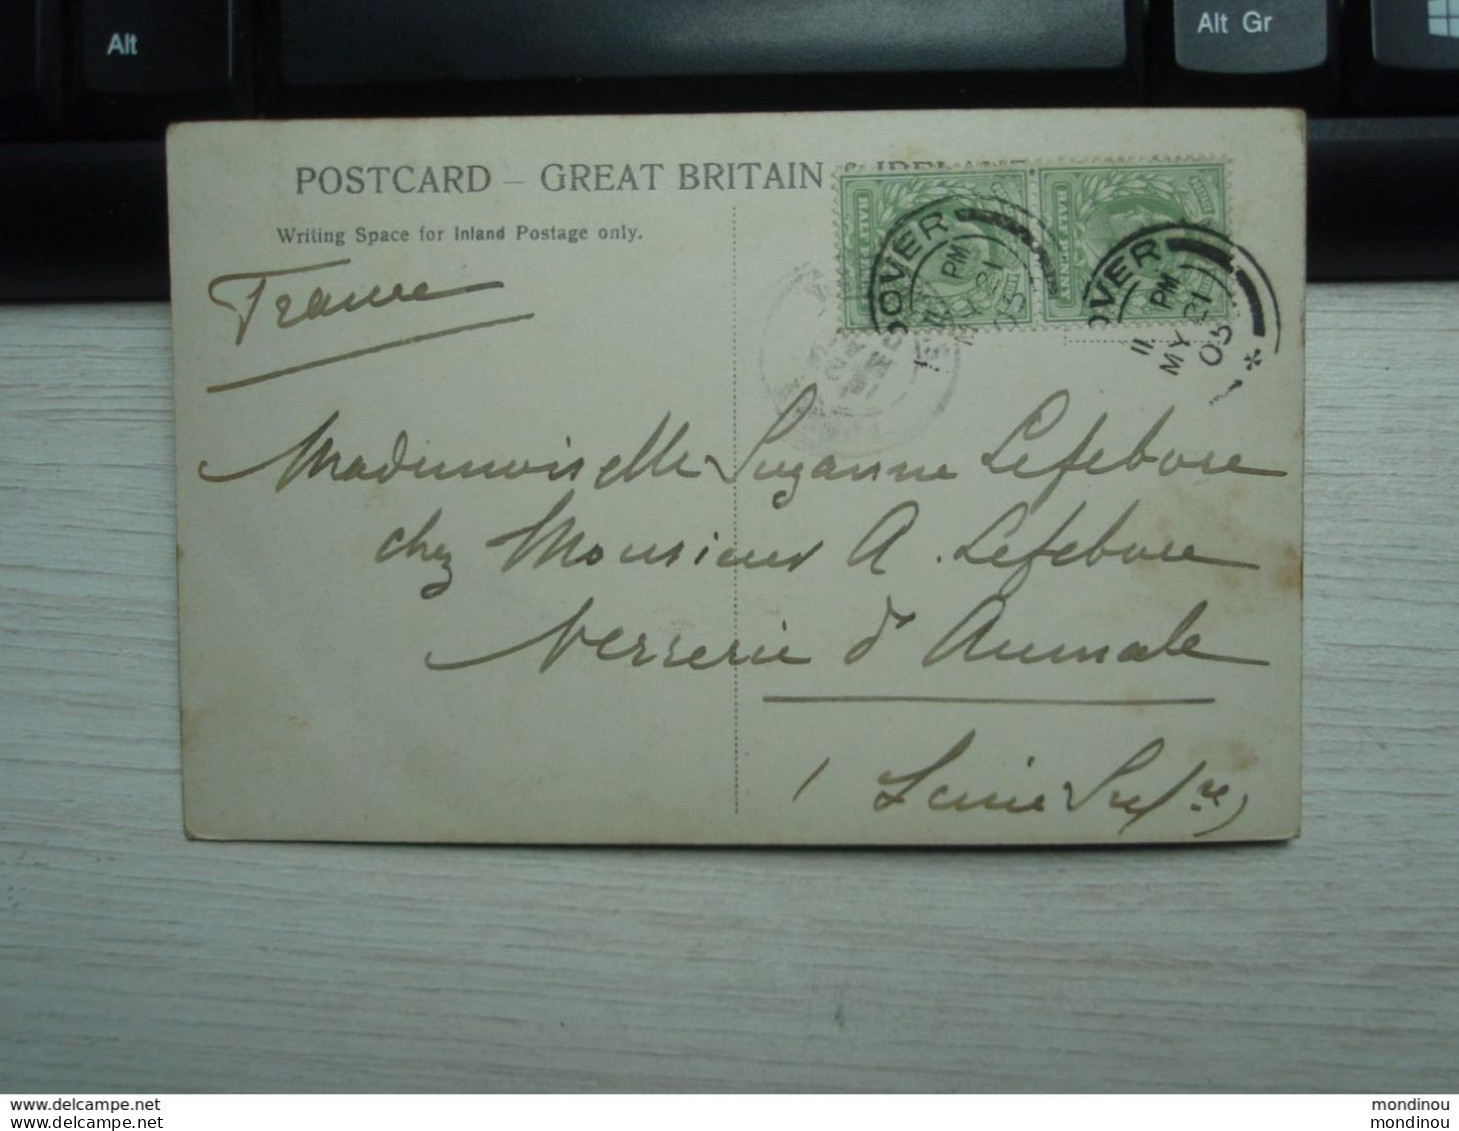 Alt
Alt Gr
POSTCARD – GREAT BRITAIN & IRELAND
Writing Space for Inland Postage only.
DOVER
PM
MY 21
05
DOVER
11 PM
MY 21
05
France
Mademoiselle Suzanne Lefebvre
chez Monsieur A. Lefebvre
Verrerie d'Aumale
Seine Infre
mondinou
mondinou
mondinou
mondinou